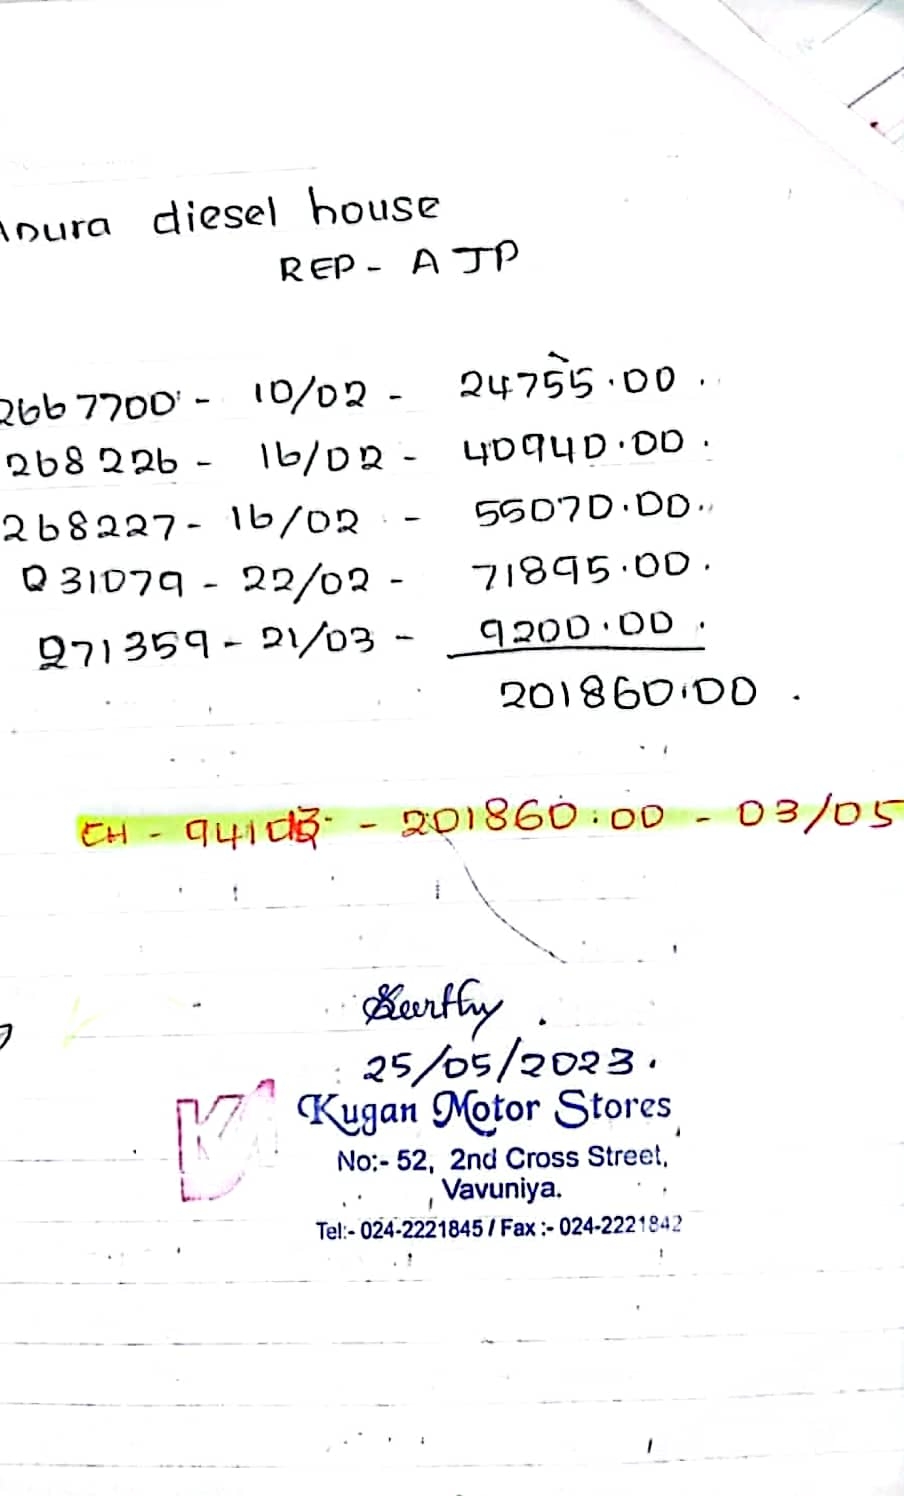 diesel house
REP - A JP
2667700 - 10/02 - 24755.00
268226 - 16/02 - 40940.00
268227 - 16/02 - 55070.00
Q31079 - 22/02 - 71895.00
271359 - 21/03 - 9200.00
201860.00
CH - - 201860:00 - 03/05
25/05/2023.
Kugan Motor Stores
No:- 52, 2nd Cross Street,
Vavuniya.
Tel:- 024-2221845 / Fax :- 024-2221842